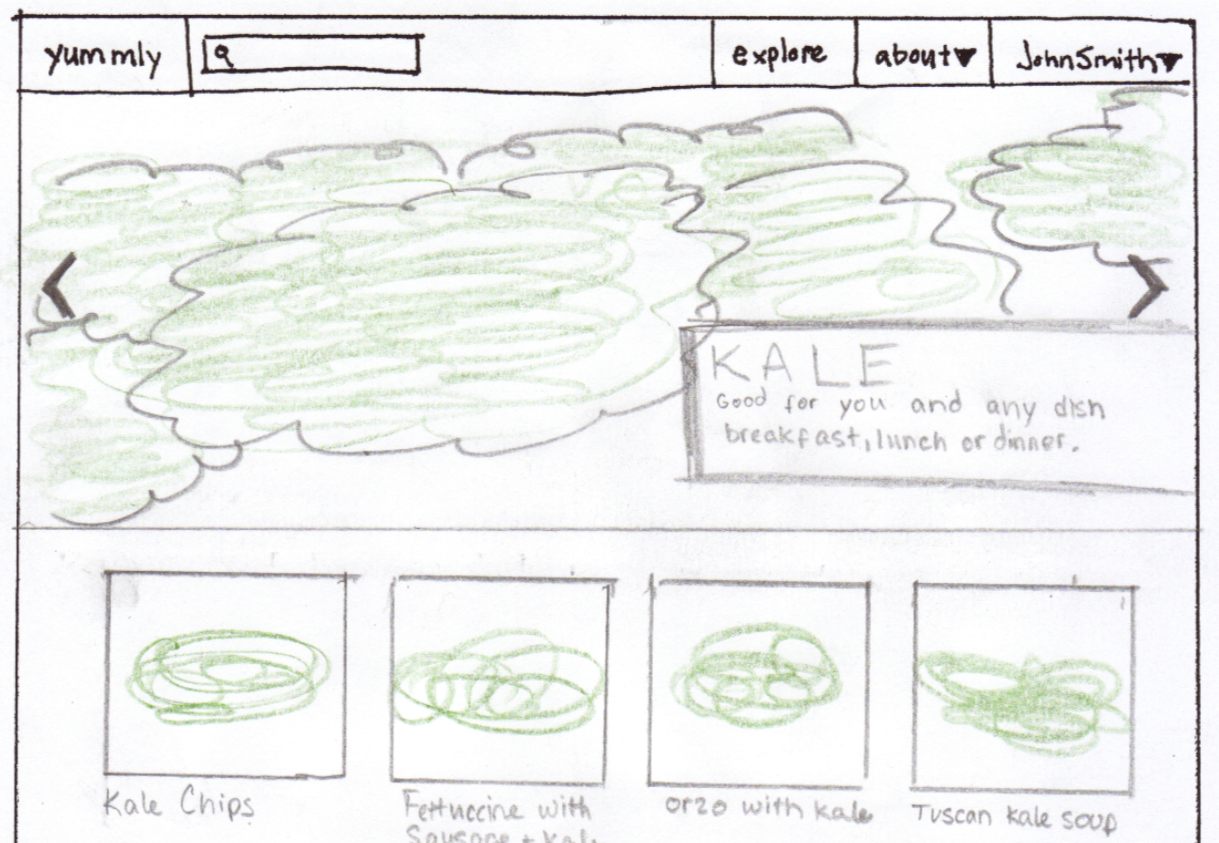 yummly
explore
about
JohnSmith
KALE
Good for you and any dish
breakfast, lunch or dinner.
Kale Chips
Fettuccine with
Sausage + Kale
orzo with kale
Tuscan kale soup